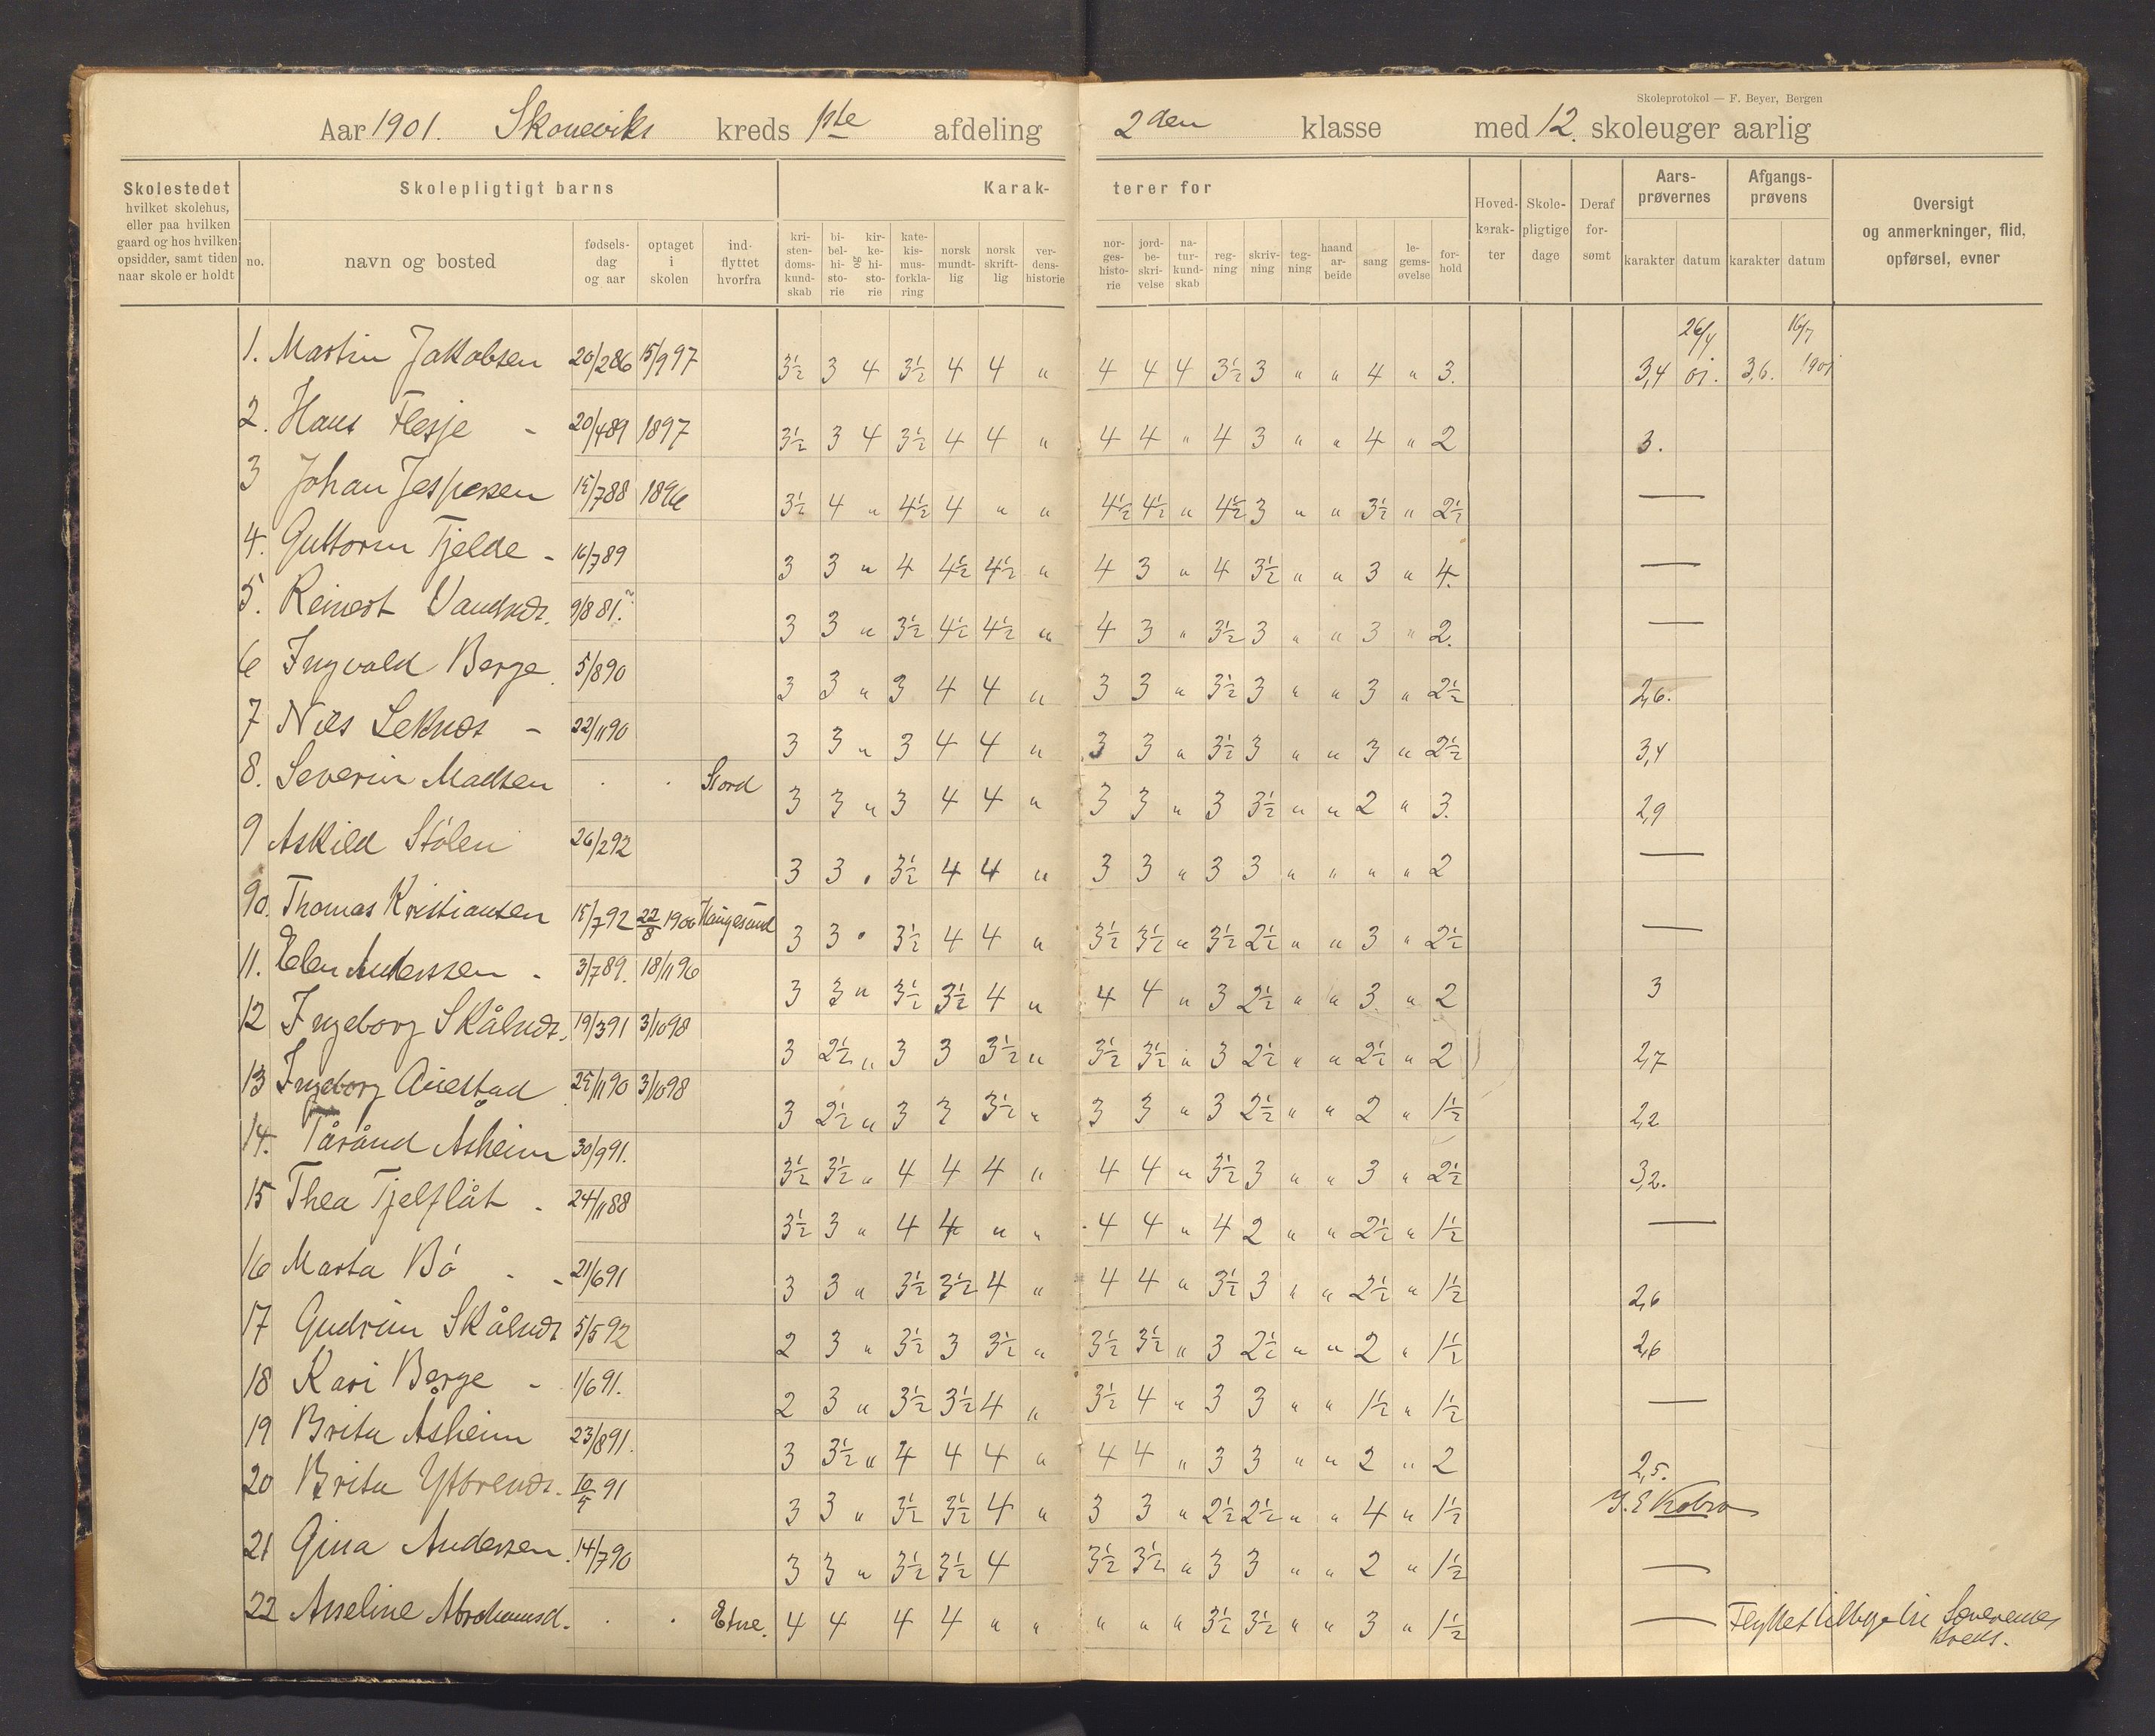 Skoleprotokol — F. Beyer, Bergen
Aar 1901. Skoneviks kreds 1ste afdeling 2den klasse med 12. skoleuger aarlig
Skolestedet hvilket skolehus, eller paa hvilken gaard og hos hvilken opsidder, samt tiden naar skole er holdt
Skolepligtigt barns
no. navn og bosted fødsels-dag og aar optaget i skolen ind-flyttet hvorfra
Karak- terer for
kri-sten-doms-kund-skab bi-bel-hi-sto-rie og kir-ke-hi-sto-rie kate-kis-mus-forkla-ring norsk mundt-lig norsk skrift-lig ver-dens-historie
nor-ges-histo-rie jord-be-skri-velse na-tur-kund-skab reg-ning skriv-ning teg-ning haand ar-beide sang le-gems-øvelse for-hold
Hoved-karak-ter Skole-pligtige dage Deraf for-sømt
Aars-prøvernes karakter datum
Afgangs-prøvens karakter datum
Oversigt og anmerkninger, flid, opførsel, evner
1. Martin Jakobsen 20/286 15/997 3½ 3 4 3½ 4 4 " 4 4 4 3½ 3 " " 4 " 3. 3,4 26/4 01. 3,6. 16/7 1901
2. Hans Flesje - 20/489 1897 3½ 3 4 3½ 4 4 " 4 4 " 4 3 " " 4 " 2 3.
3 Johan Jespersen 15/788 1896 3½ 4 " 4½ 4 " " 4½ 4½ " 4½ 3 " " 3½ " 2½ —
4. Guttorm Tjelde - 16/789 3 3 " 4 4½ 4½ " 4 3 " 4 3½ " " 3 " 4. —
5. Reinert Vandnes. 9/881.? 3 3 " 3½ 4½ 4½ " 4 3 " 3½ 3 " " 3 " 2. —
6 Ingvald Berge 5/890 3 3 " 3 4 4 " 3 3 " 3½ 3 " " 3 " 2½ 2,6.
7 Nils Leknes - 22/1190 3 3 " 3 4 4 " 3 3 " 3½ 3 " " 3 " 2½ 3,4
8. Severin Madsen . . Stord 3 3 " 3 4 4 " 3 3 " 3 3½ " " 2 " 3. 2,9
9 Askild Stölen 26/292 3 3 . 3½ 4 4 " 3 3 " 3 3 " " " " 2 —
90. Thomas Kristiansen 15/792 22/8 1900 Haugesund 3 3 . 3½ 4 4 " 3½ 3½ " 3½ 2½ " " 3 " 2½ —
11. Elen Anderssen - 3/789. 18/1196 3 3 " 3½ 3½ 4 " 4 4 " 3 2½ " " 3 " 2 3
12 Ingeborg Skålnes. 19/391 3/1098 3 2½ " 3 3 3½ " 3½ 3½ " 3 2½ " " 2½ " 2 2,7
13 Ingeborg Auestad 25/1190 3/1098 3 2½ " 3 3 3½ " 3 3 " 3 2½ " " 2 " 1½ 2,2
14. Tårånd Åsheim 30/991. 3½ 3½ " 4 4 4 " 4 4 " 3½ 3 " " 3 " 2½ 3,2.
15 Thea Tjelflåt - 24/1188 3½ 3 " 4 4 " " 4 4 " 4 2 " " 2½ " 1½ —
16 Marta Bö - - 21/691 3 3 " 3½ 3½ 4 " 4 4 " 3½ 3 " " 2½ " 1½ 2,6
17 Gudrun Skålnes 5/592 2 3 " 3½ 3 3½ " 3½ 3½ " 3 2½ " " 2 " 1½ 2,6
18 Kari Berge - 1/691. 2 3 " 3½ 3½ 4 " 3½ 4 " 3 3 " " 1½ " 1½ —
19 Brita Åsheim 23/891. 3 3½ " 4 4 4 " 4 4 " 3 3 " " 2 " 2 2,5.
20 Brita Ytrenes. 10/5 91 3 3 " 3½ 3½ 4 " 3 3 " 2½ 2½ " " 4 " 1½ Kobro
21 Gina Andersen. 14/790 3 3 " 3½ 3½ 4 3½ 3½ " 3 3 " " 2 " 1½ —
22 Asseline Abrahamsd. . . Etne. 4 4 4 4 " " " " " 3½ 3½ " " 3 " 1½ — Flyttet tilbage til
kreds.